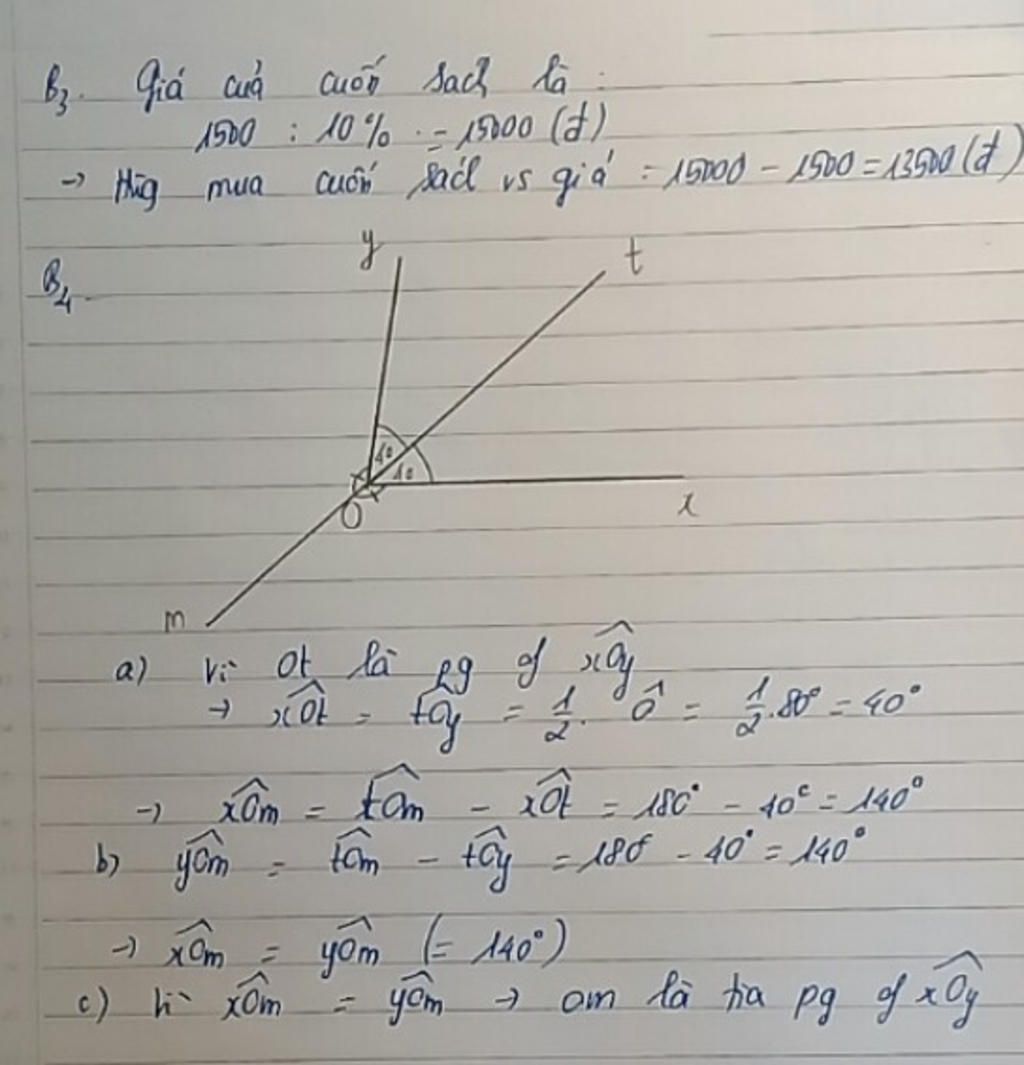 B3. Giá cuả cuốn sach là :
1500 : 10% = 15000 (đ)
→ Hùg mua cuốn sách vs giá : 15000 - 1500 = 13500 (đ)
B4.
y
t
40
40
O
x
m
a) Vì Ot là pg of xOy
→ xOt = tOy = 1/2 . Ô = 1/2 . 80° = 40°
→ xOm = tOm - xOt = 180° - 40° = 140°
b) yOm = tOm - tOy = 180° - 40° = 140°
→ xOm = yOm (= 140°)
c) Vì xOm = yOm → om là tia pg of xOy